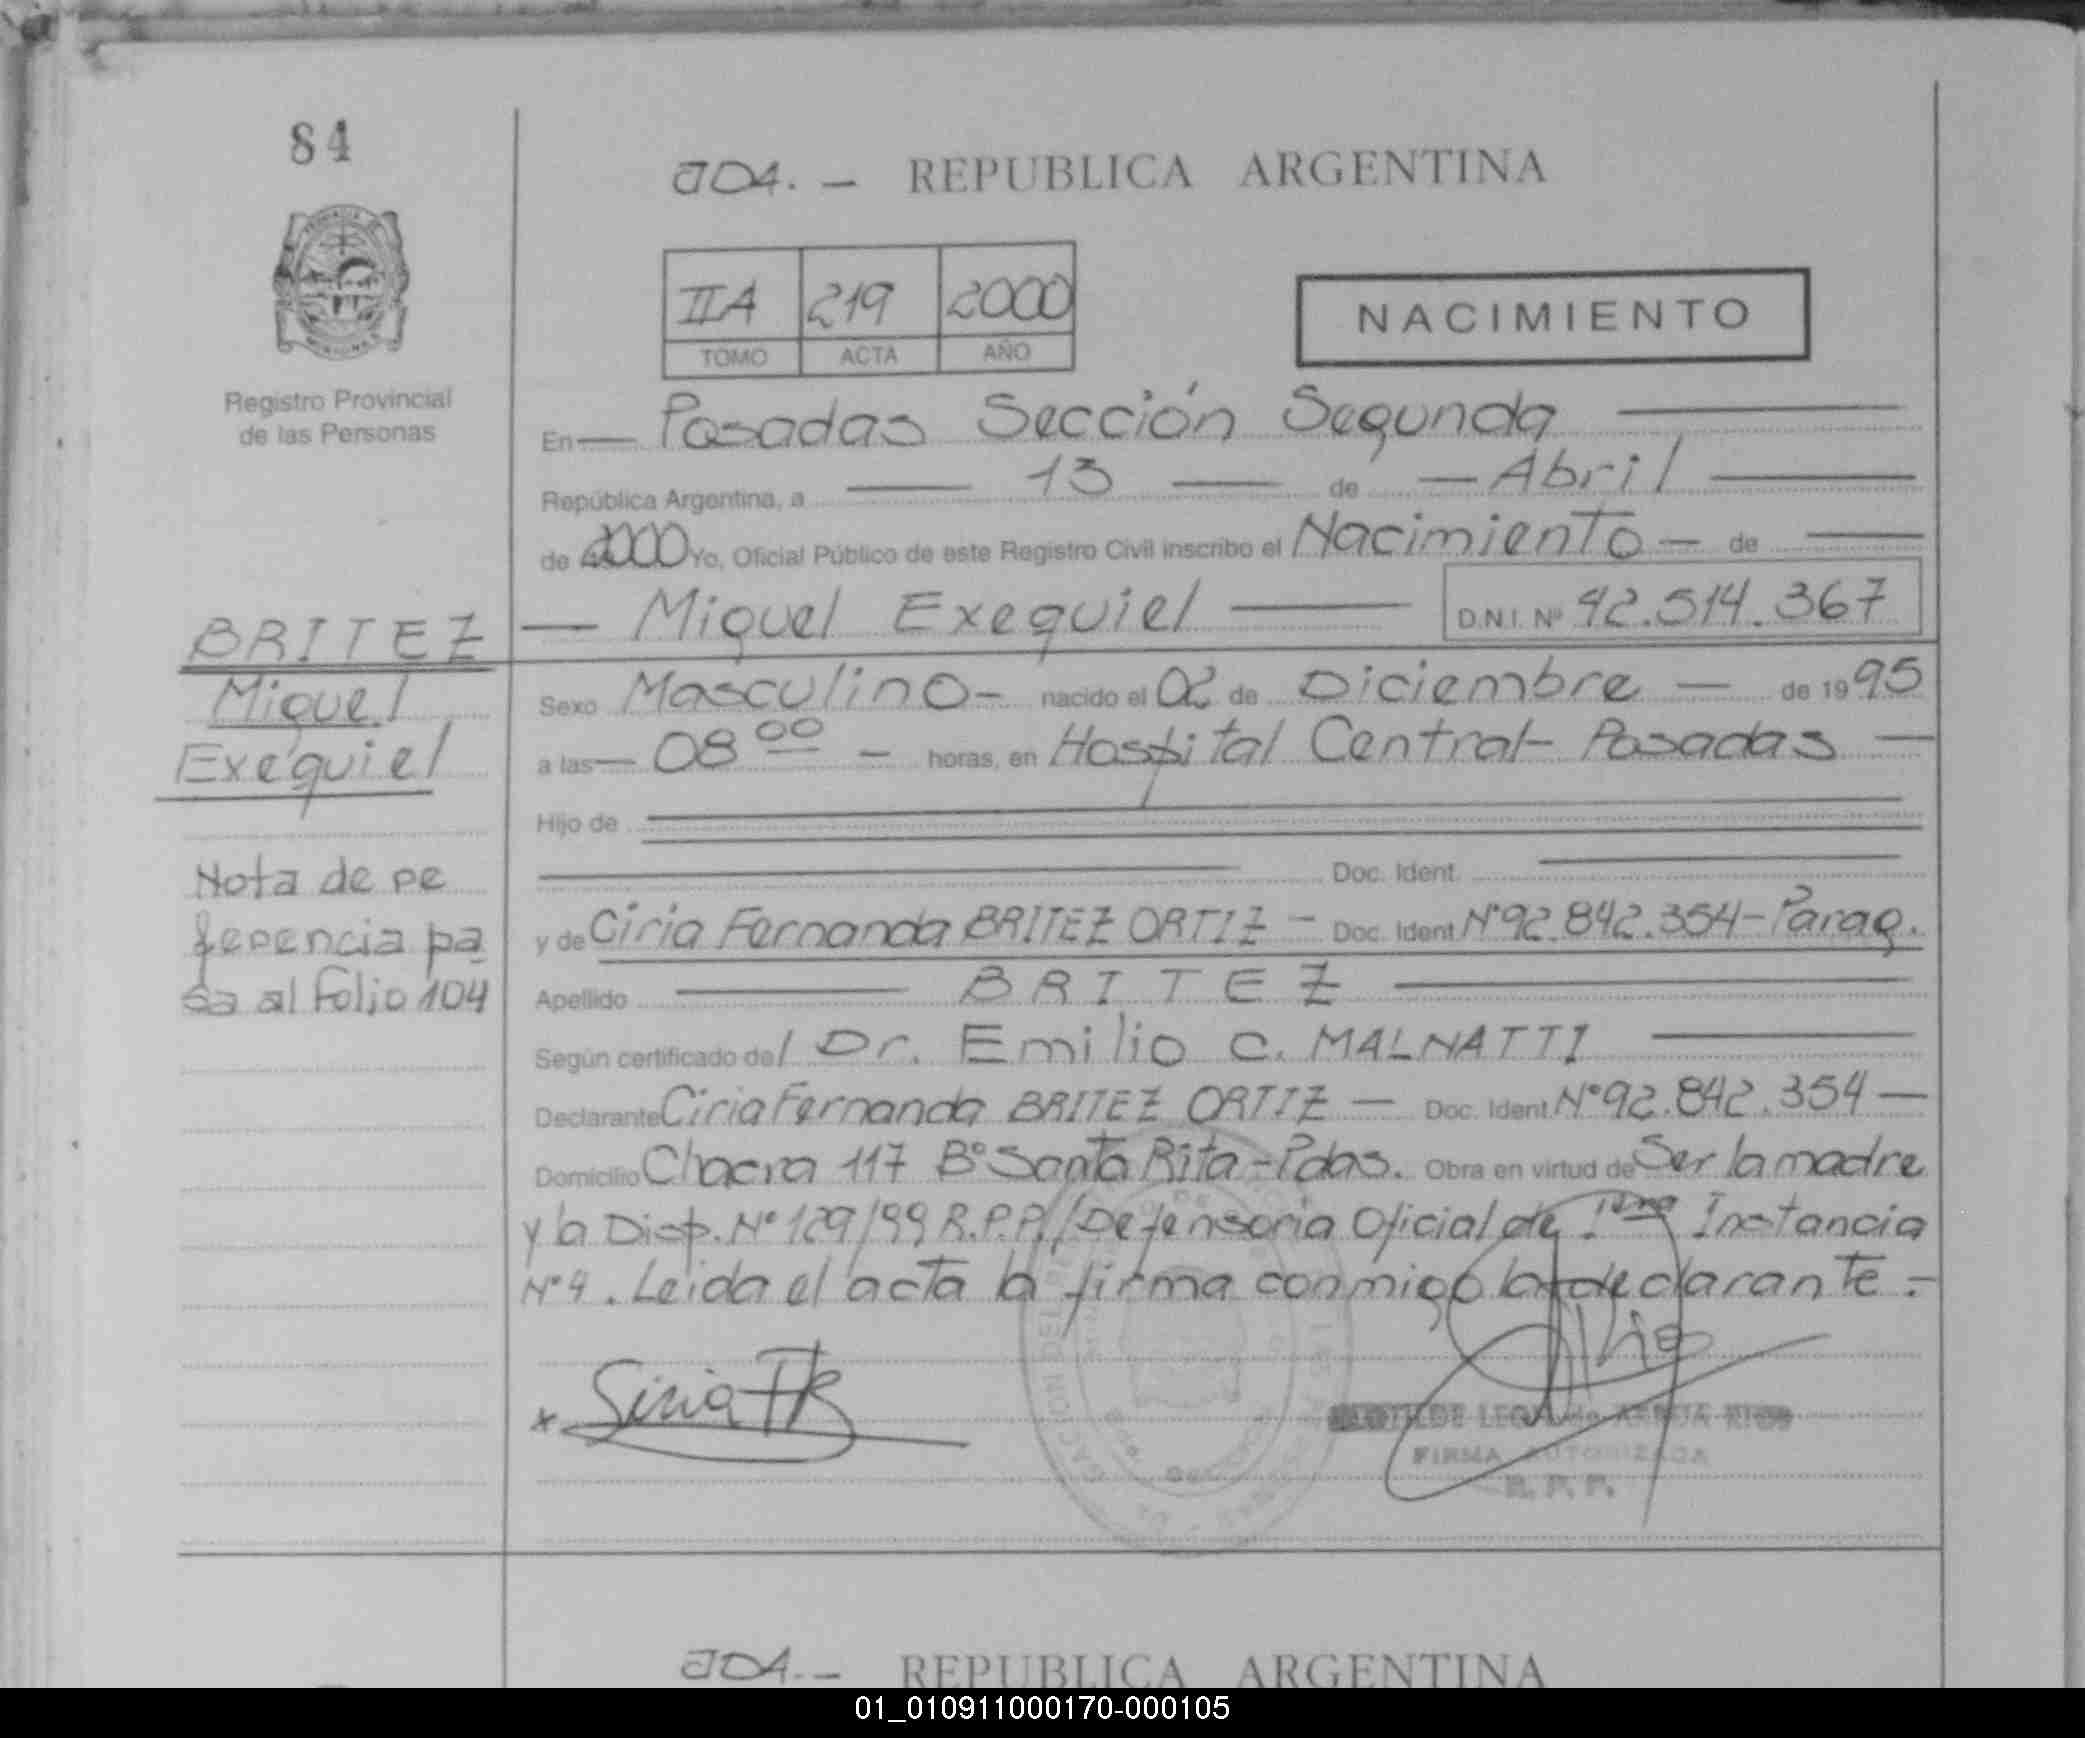 84
JOA. - REPUBLICA ARGENTINA
IIA 219 2000
TOMO ACTA AÑO
NACIMIENTO
Registro Provincial
de las Personas
En Posadas Sección Segunda
República Argentina, a 13 de Abril
de 2000 Yo, Oficial Público de este Registro Civil inscribo el Nacimiento de
Miguel Exequiel D.N.I. Nº 42.514.367
BRITEZ
Miguel
Exequiel
Sexo Masculino - nacido el 02 de Diciembre - de 1995
a las 08 00 - horas, en Hospital Central - Posadas -
Hijo de
Doc. Ident.
y de Ciria Fernanda BRITEZ ORTIZ - Doc. Ident. Nº 92.842.354 - Parag.
Apellido BRITEZ
Según certificado del Dr. Emilio C. MALNATTI
Declarante Ciria Fernanda BRITEZ ORTIZ - Doc. Ident. Nº 92.842.354 -
Domicilio Chacra 117 Bº Santa Rita - Pdas. Obra en virtud de Ser la madre
y la Disp. Nº 129/99 R.P.P./Defensoria Oficial de 1era Instancia
Nº 4. Leida el acta la firma conmigo la declarante. -
Nota de re
ferencia pa
sa al folio 104
x Siria FB
FIRMA AUTORIZADA
R. P. P.
JOA. - REPUBLICA ARGENTINA
01_010911000170-000105